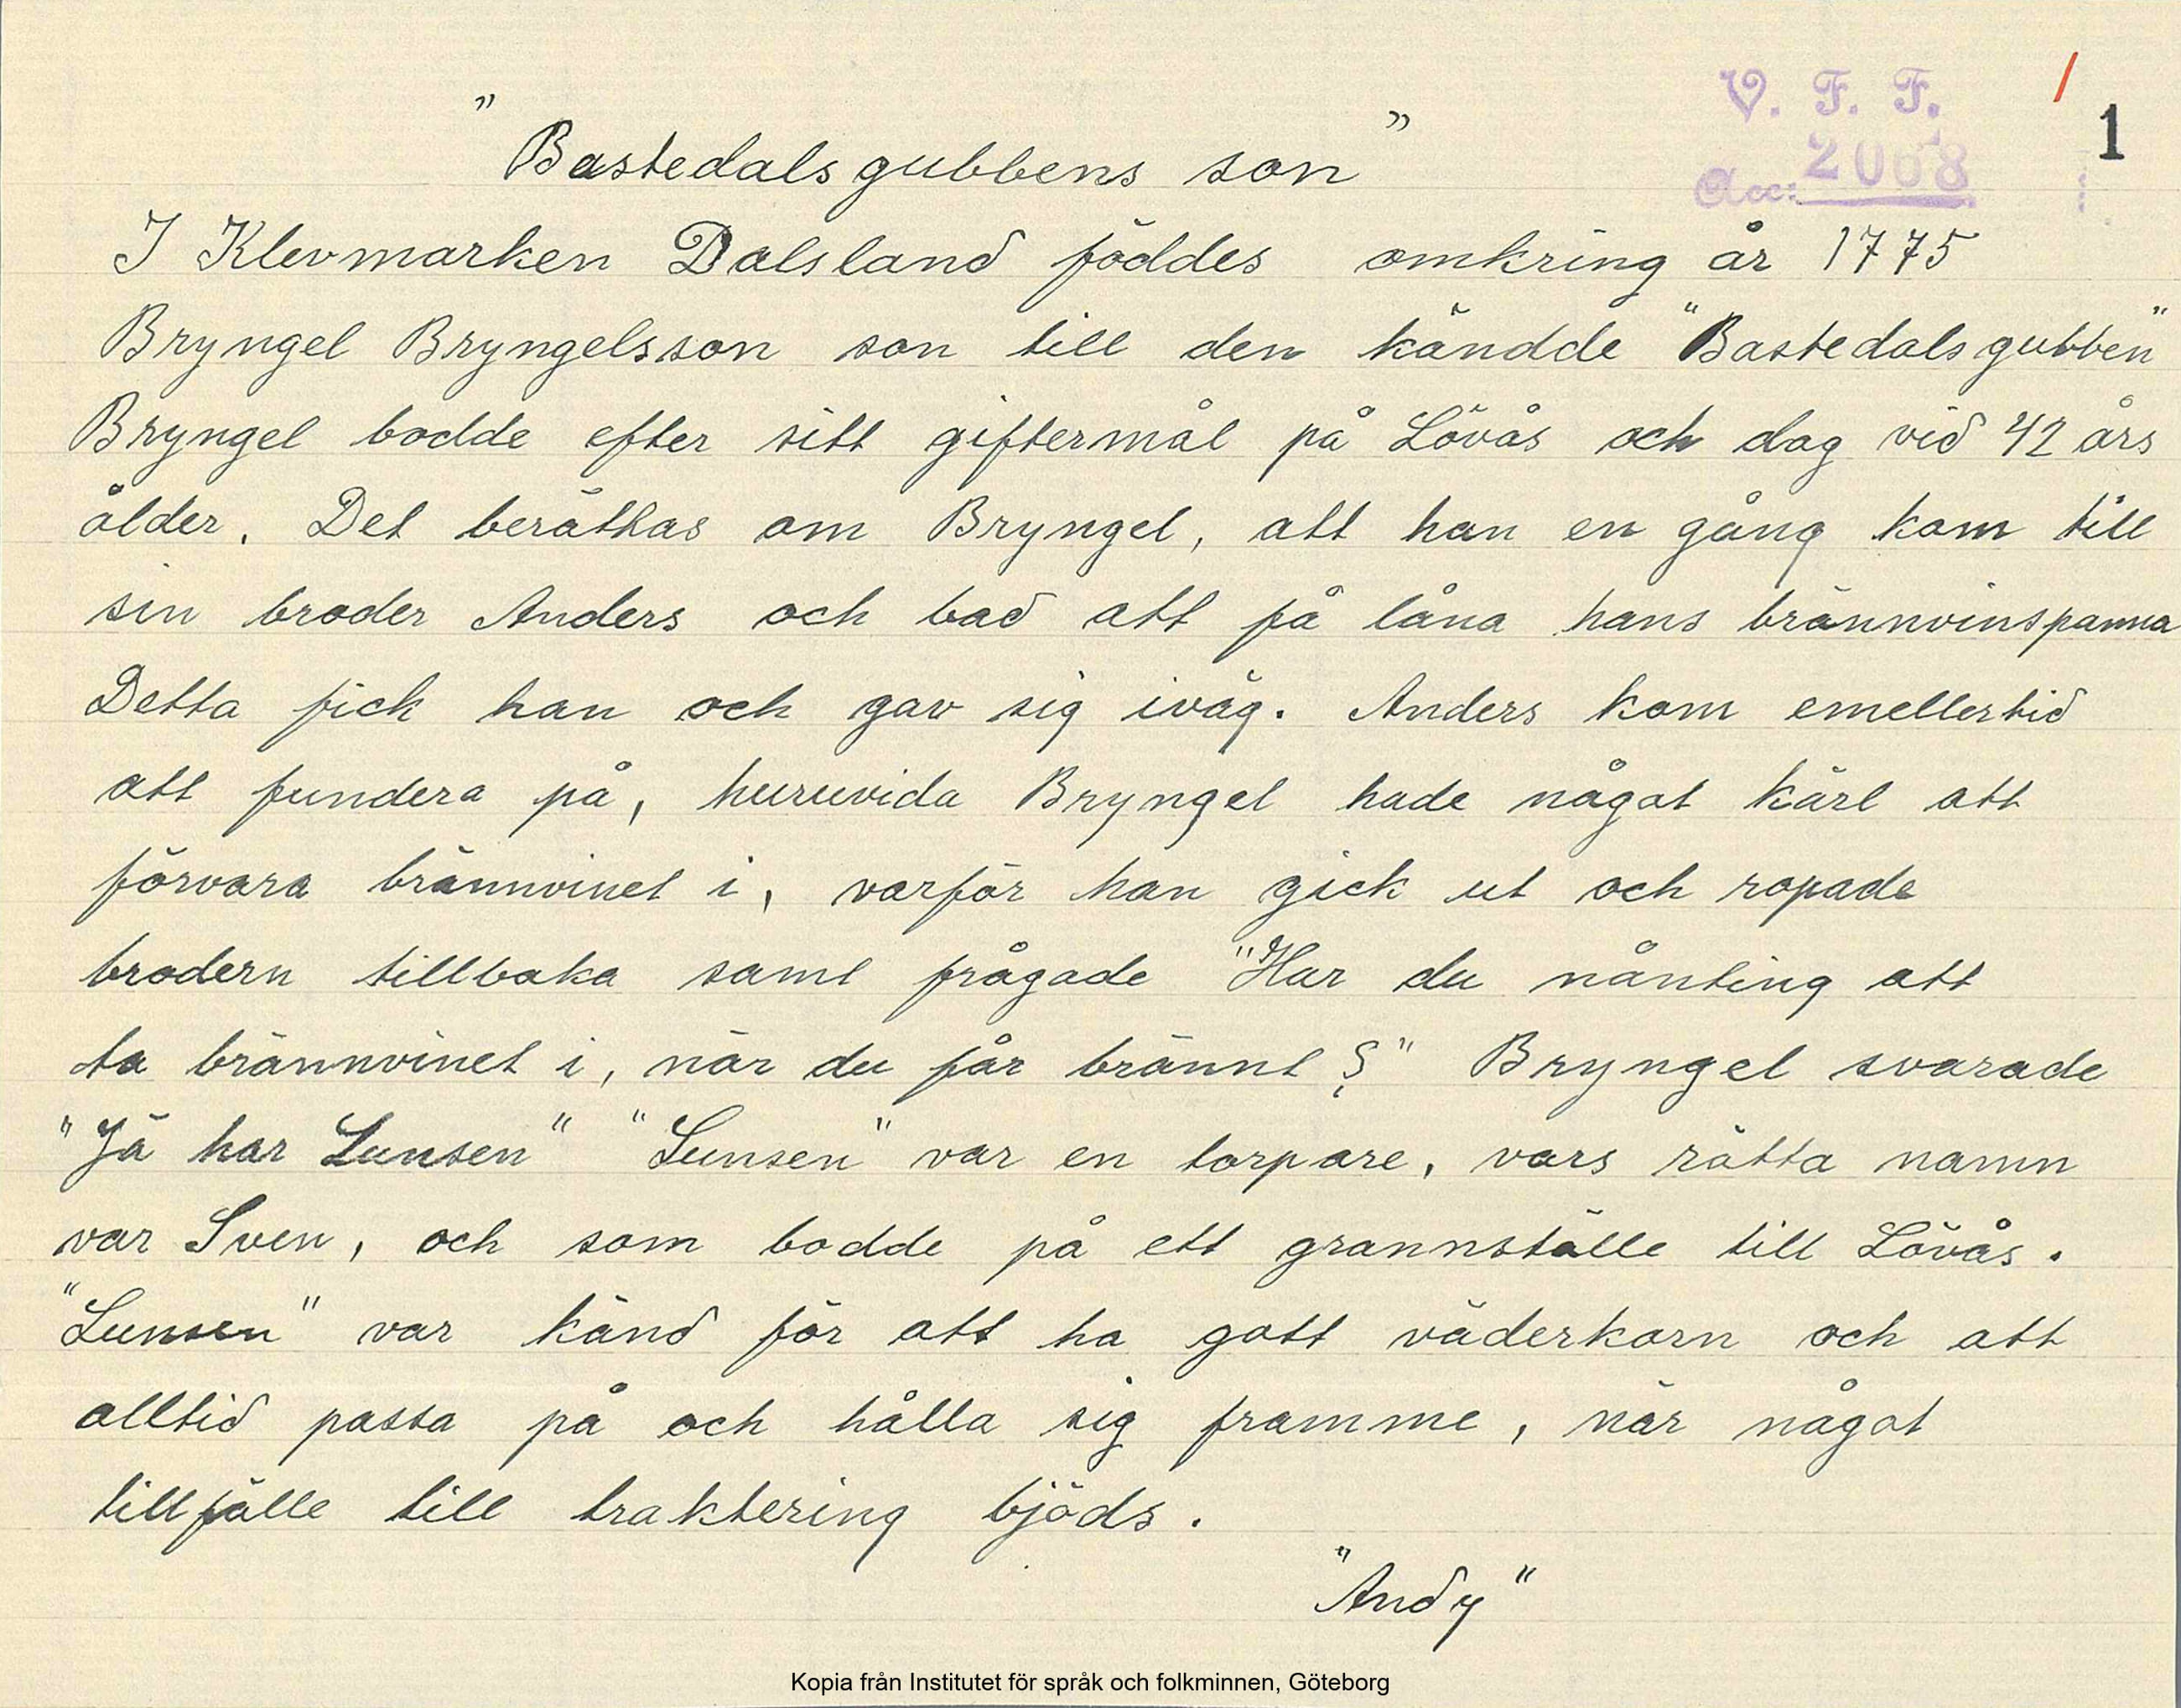 V. F. F. / 1
Acc: 2068
"Bastedalsgubbens son"
I Klevmarken Dalsland föddes omkring år 1775
Bryngel Bryngelsson son till den kändde "Bastedalsgubben"
Bryngel bodde efter sitt giftermål på Lövås och dog vid 42 års
ålder. Det berättas om Bryngel, att han en gång kom till
sin broder Anders och bad att få låna hans brännvinspanna
Detta fick han och gav sig iväg. Anders kom emellertid
att fundera på, huruvida Bryngel hade något kärl att
förvara brännvinet i, varför han gick ut och ropade
brodern tillbaka samt frågade "Har du nånting att
ta brännvinet i, när du får brännt?" Bryngel svarade
"Jä har Lunsen" "Lunsen" var en torpare, vars rätta namn
var Sven, och som bodde på ett grannställe till Lövås.
"Lunsen" var känd för att ha gott väderkorn och att
alltid passa på och hålla sig framme, när något
tillfälle till traktering bjöds.
"Andy"
Kopia från Institutet för språk och folkminnen, Göteborg